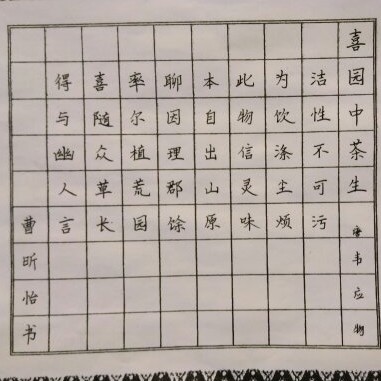 喜园中茶生
唐韦应物
洁性不可污
为饮涤尘烦
此物信灵味
本自出山原
聊因理郡馀
率尔植荒园
喜随众草长
得与幽人言
曹昕怡书